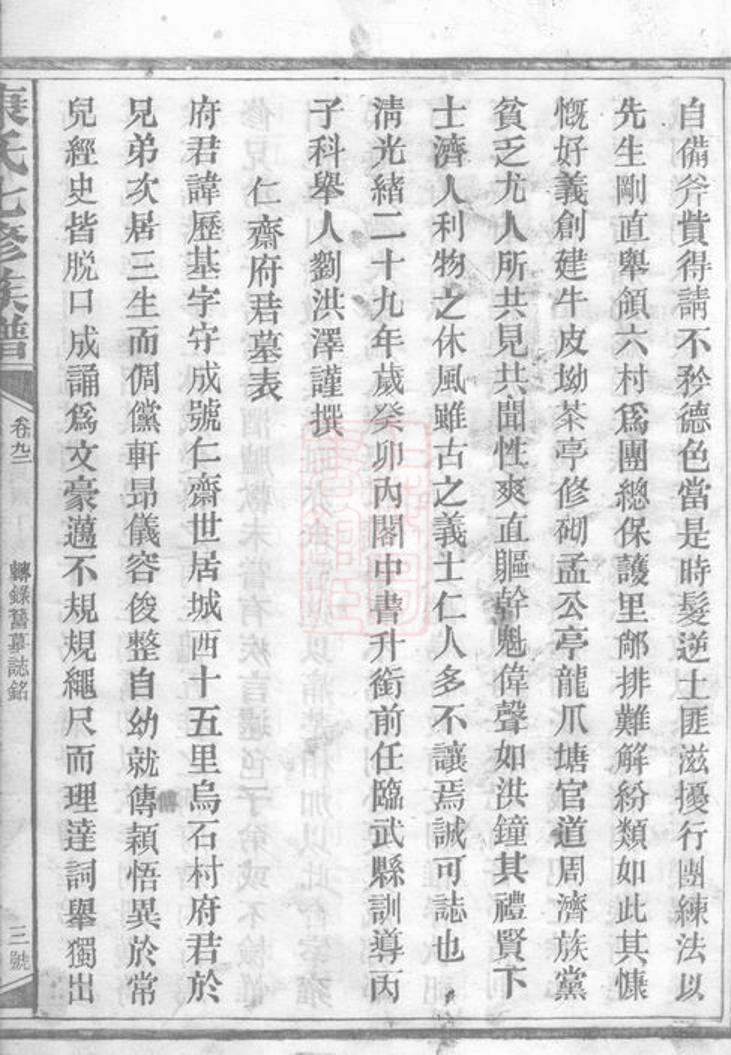 自備斧貲得請不矜德色當是時髮逆土匪滋擾行團練法以
先生剛直舉領六村爲團總保護里鄰排難解紛類如此其慷
慨好義創建牛皮坳茶亭修砌孟公亭龍爪塘官道周濟族黨
貧乏尤人所共見共聞性爽直軀幹魁偉聲如洪鐘其禮賢下
士濟人利物之休風雖古之義士仁人多不讓焉誠可誌也
淸光緒二十九年歲癸卯內閣中書升銜前任臨武縣訓導丙
子科舉人劉洪澤謹撰
仁齋府君墓表
府君諱歷基字守成號仁齋世居城西十五里烏石村府君於
兄弟次居三生而倜儻軒昂儀容俊整自幼就傳穎悟異於常
傅
兒經史皆脱口成誦爲文豪邁不規規繩尺而理達詞舉獨出
氏七修族譜
卷九二
轉錄舊墓誌銘
三號